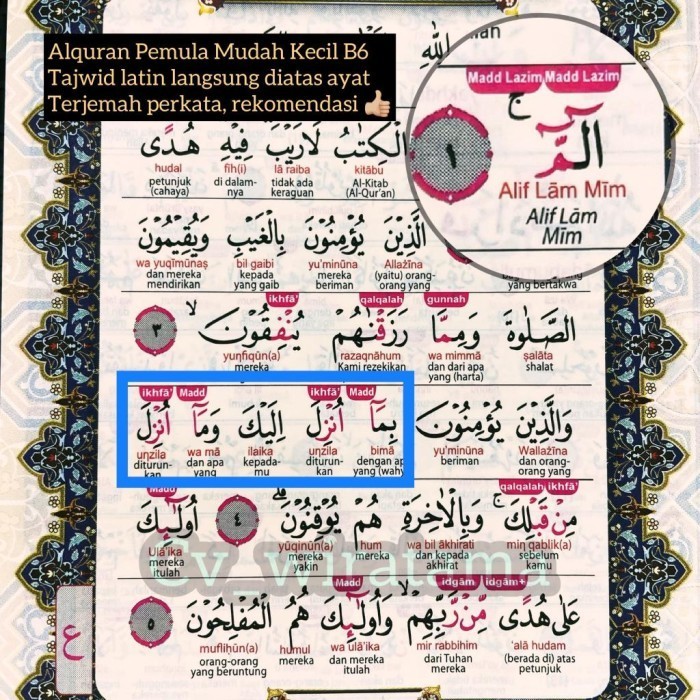 Alquran Pemula Mudah Kecil B6
Tajwid latin langsung diatas ayat
Terjemah perkata, rekomendasi 👍🏼
Madd Lazim Madd Lazim
الۤمّۤ ۚ ١
Alif Lām Mīm
Alif Lām
Mīm
الْكِتٰبُ لَا رَيْبَ ۛ فِيْهِ ۛ هُدًى
kitābu lā raiba fīh(i) hudal
Al-Kitab (Al-Qur'an) tidak ada keraguan di dalam-nya petunjuk (cahaya)
الَّذِيْنَ يُؤْمِنُوْنَ بِالْغَيْبِ وَيُقِيْمُوْنَ
Allażīna yu'minūna bil gaibi wa yuqīmūnaṣ
yang bertakwa (yaitu) orang-orang yang mereka beriman kepada yang gaib dan mereka mendirikan
gunnah qalqalah ikhfā'
الصَّلٰوةَ وَمِمَّا رَزَقْنٰهُمْ يُنْفِقُوْنَ ۙ ٣
ṣalāta wa mimmā razaqnāhum yunfiqūn(a)
shalat dan dari apa yang (harta) Kami rezekikan mereka
Madd ikhfā' Madd ikhfā'
وَالَّذِيْنَ يُؤْمِنُوْنَ بِمَآ اُنْزِلَ اِلَيْكَ وَمَآ اُنْزِلَ
Wallażīna yu'minūna bimā unzila ilaika wa mā unzila
dan orang-orang yang beriman dengan ap yang (wahy diturun-kan kepada-mu dan apa yang diturun-kan
ikhfā' qalqalah Madd
مِنْ قَبْلِكَ ۚ وَبِالْاٰخِرَةِ هُمْ يُوْقِنُوْنَ ۗ ٤ اُولٰۤىِٕكَ
min qablik(a) wa bil ākhirati hum yūqinūn(a) Ulā'ika
sebelum kamu dan kepada akhirat mereka mereka yakin mereka itulah
Cv_wiratama
idgām+ idgām Madd
عَلٰى هُدًى مِّنْ رَّبِّهِمْ ۙ وَاُولٰۤىِٕكَ هُمُ الْمُفْلِحُوْنَ ٥
'alā hudam mir rabbihim wa ulā'ika humul mufliḥūn(a)
(berada di) atas petunjuk dari Tuhan mereka dan mereka itulah mereka orang-orang yang beruntung
ع